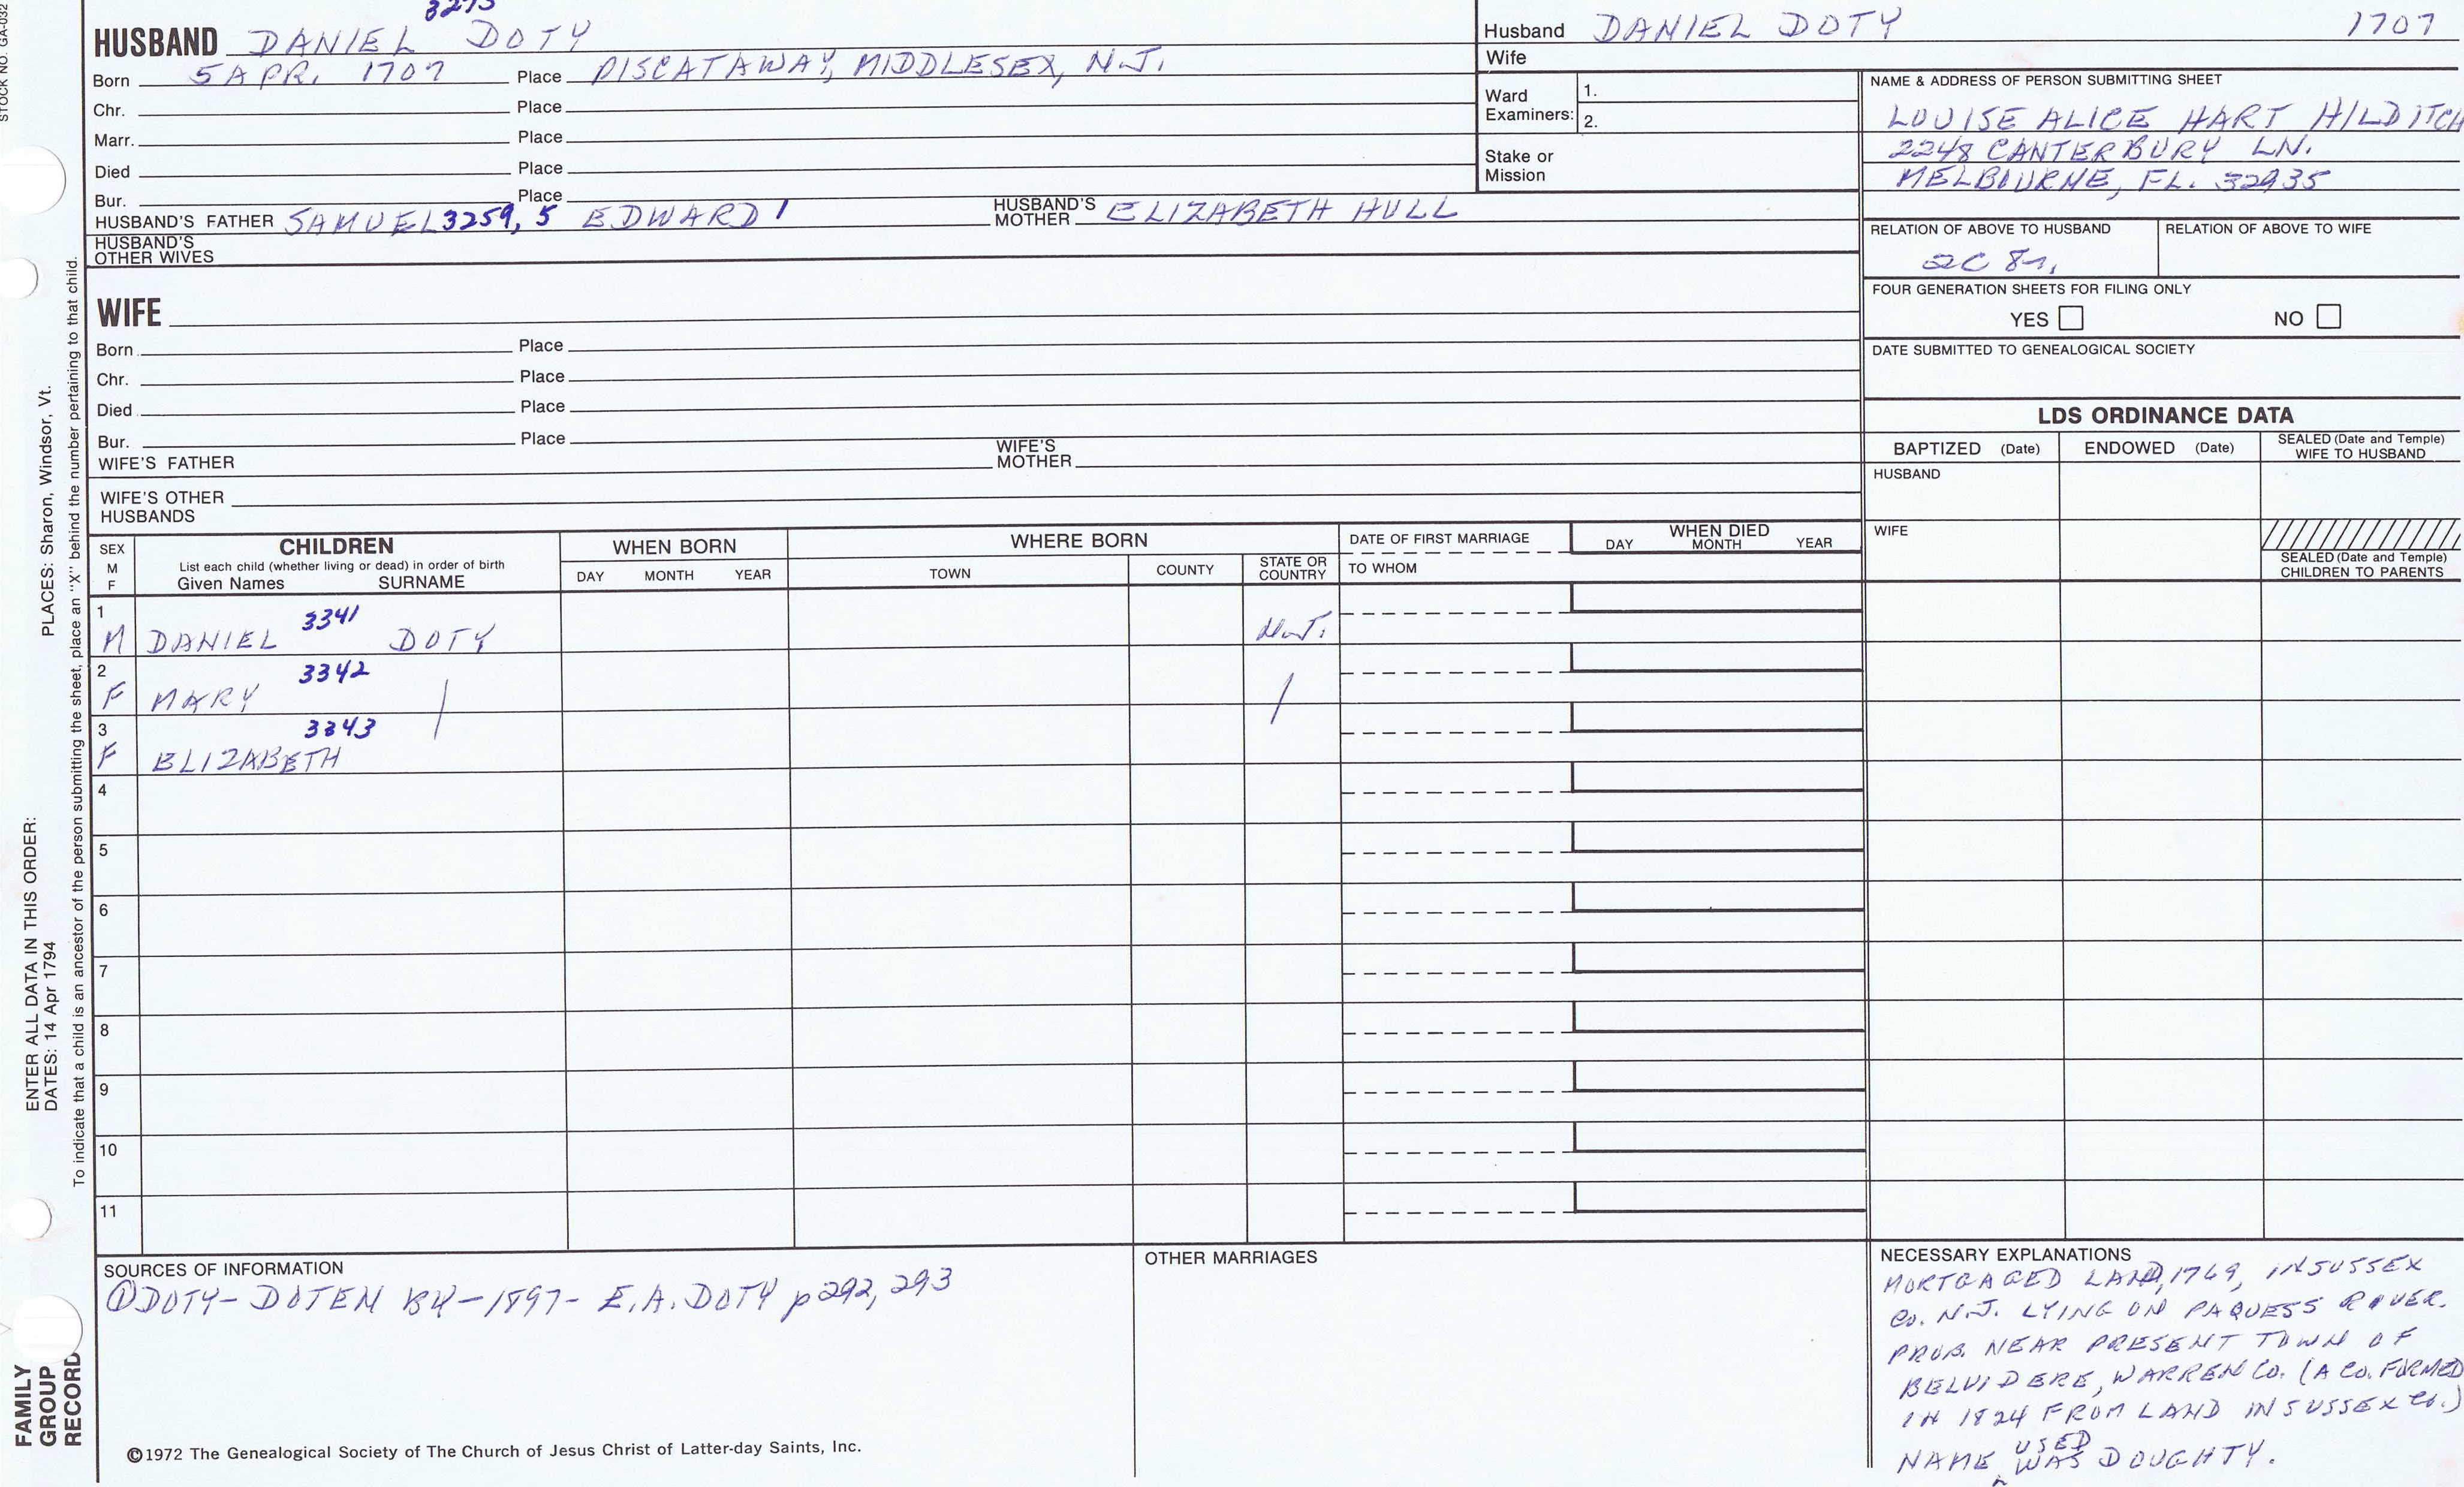 STOCK NO. GA-032
HUSBAND DANIEL DOTY
Born 5 APR. 1707 Place PISCATAWAY, MIDDLESEX, N.J.
Chr. Place
Marr. Place
Died Place
Bur. Place
HUSBAND'S FATHER SAMUEL 3259, 5 EDWARD 1 HUSBAND'S MOTHER ELIZABETH HULL
HUSBAND'S OTHER WIVES
Husband DANIEL DOTY 1707
Wife
Ward Examiners: 1.
2.
Stake or Mission
NAME & ADDRESS OF PERSON SUBMITTING SHEET
LOUISE ALICE HART HILDITCH
2248 CANTERBURY LN.
MELBOURNE, FL. 32935
RELATION OF ABOVE TO HUSBAND RELATION OF ABOVE TO WIFE
2C 8r,
FOUR GENERATION SHEETS FOR FILING ONLY
YES NO
DATE SUBMITTED TO GENEALOGICAL SOCIETY
WIFE
Born Place
Chr. Place
Died Place
Bur. Place
WIFE'S FATHER WIFE'S MOTHER
WIFE'S OTHER HUSBANDS
LDS ORDINANCE DATA
BAPTIZED (Date) ENDOWED (Date) SEALED (Date and Temple) WIFE TO HUSBAND
HUSBAND
WIFE
SEALED (Date and Temple) CHILDREN TO PARENTS
SEX M F
CHILDREN
List each child (whether living or dead) in order of birth
Given Names SURNAME
WHEN BORN
DAY MONTH YEAR
WHERE BORN
TOWN COUNTY STATE OR COUNTRY
DATE OF FIRST MARRIAGE
TO WHOM
WHEN DIED
DAY MONTH YEAR
1 3341
M DANIEL DOTY N.J.
2 3342
F MARY
3 3343
F ELIZABETH
4
5
6
7
8
9
10
11
SOURCES OF INFORMATION
① DOTY-DOTEN BK-1897- E.A. DOTY p 292, 293
OTHER MARRIAGES
NECESSARY EXPLANATIONS
MORTGAGED LAND, 1769, IN SUSSEX
CO. N.J. LYING ON PAQUESS RIVER.
PROB. NEAR PRESENT TOWN OF
BELVIDERE, WARREN CO. (A CO. FORMED
IN 1824 FROM LAND IN SUSSEX CO.)
NAME USED WAS DOUGHTY.
©1972 The Genealogical Society of The Church of Jesus Christ of Latter-day Saints, Inc.
FAMILY
GROUP
RECORD
ENTER ALL DATA IN THIS ORDER:
DATES: 14 Apr 1794
PLACES: Sharon, Windsor, Vt.
To indicate that a child is an ancestor of the person submitting the sheet, place an "X" behind the number pertaining to that child.